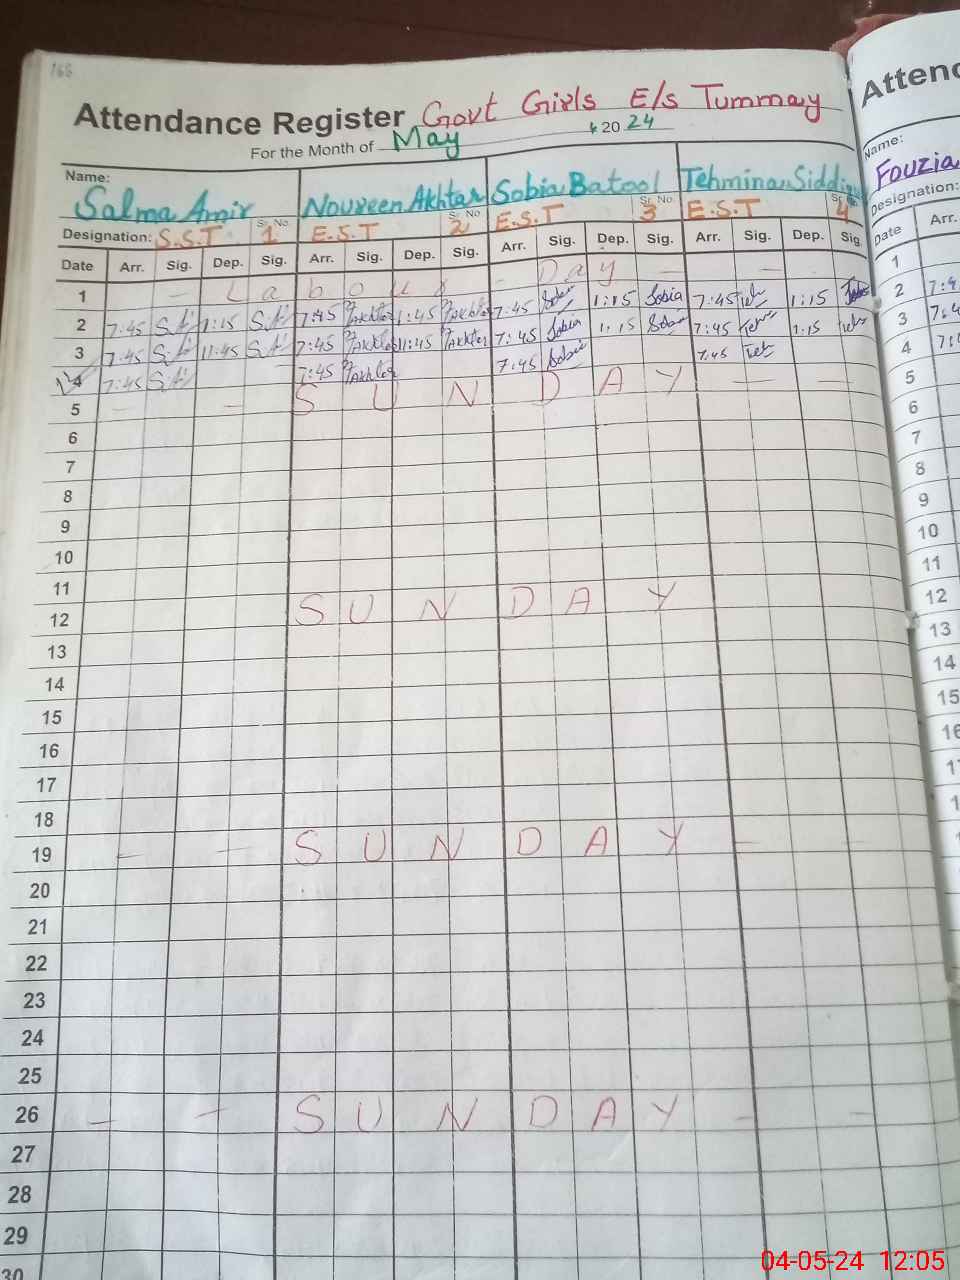 165
Attendance Register Govt Girls E/s Tummay
For the Month of May 2024
Name: Salma Amir Noureen Akhtar Sobia Batool Tehmina
Designation: S.S.T Sr. No. 1 E.S.T Sr. No. 2 E.S.T Sr. No. 3 E.S.T Sr. No. 4
Date Arr. Sig. Dep. Sig. Arr. Sig. Dep. Sig. Arr. Sig. Dep. Sig. Arr. Sig. Dep. Sig.
1 - Labour - Day - -
2 7:45 1:15 7:45 Akhtar 1:45 Akhtar 7:45 Sobia 1:15 Sobia 7:45 1:15
3 7:45 11:45 7:45 Akhtar 11:45 Akhtar 7:45 Sobia 1:15 Sobia 7:45 1:15
4 7:45 7:45 Akhtar 7:45 Sobia 7:45
5 - - SUNDAY - -
6
7
8
9
10
11
12 SUNDAY
13
14
15
16
17
18
19 - - SUNDAY - -
20
21
22
23
24
25
26 - - SUNDAY - -
27
28
29
30
Name:
Fouzia
Designation:
Date Arr.
1
2
3
4
5
6
7
8
9
10
11
12
13
14
15
04-05-24 12:05